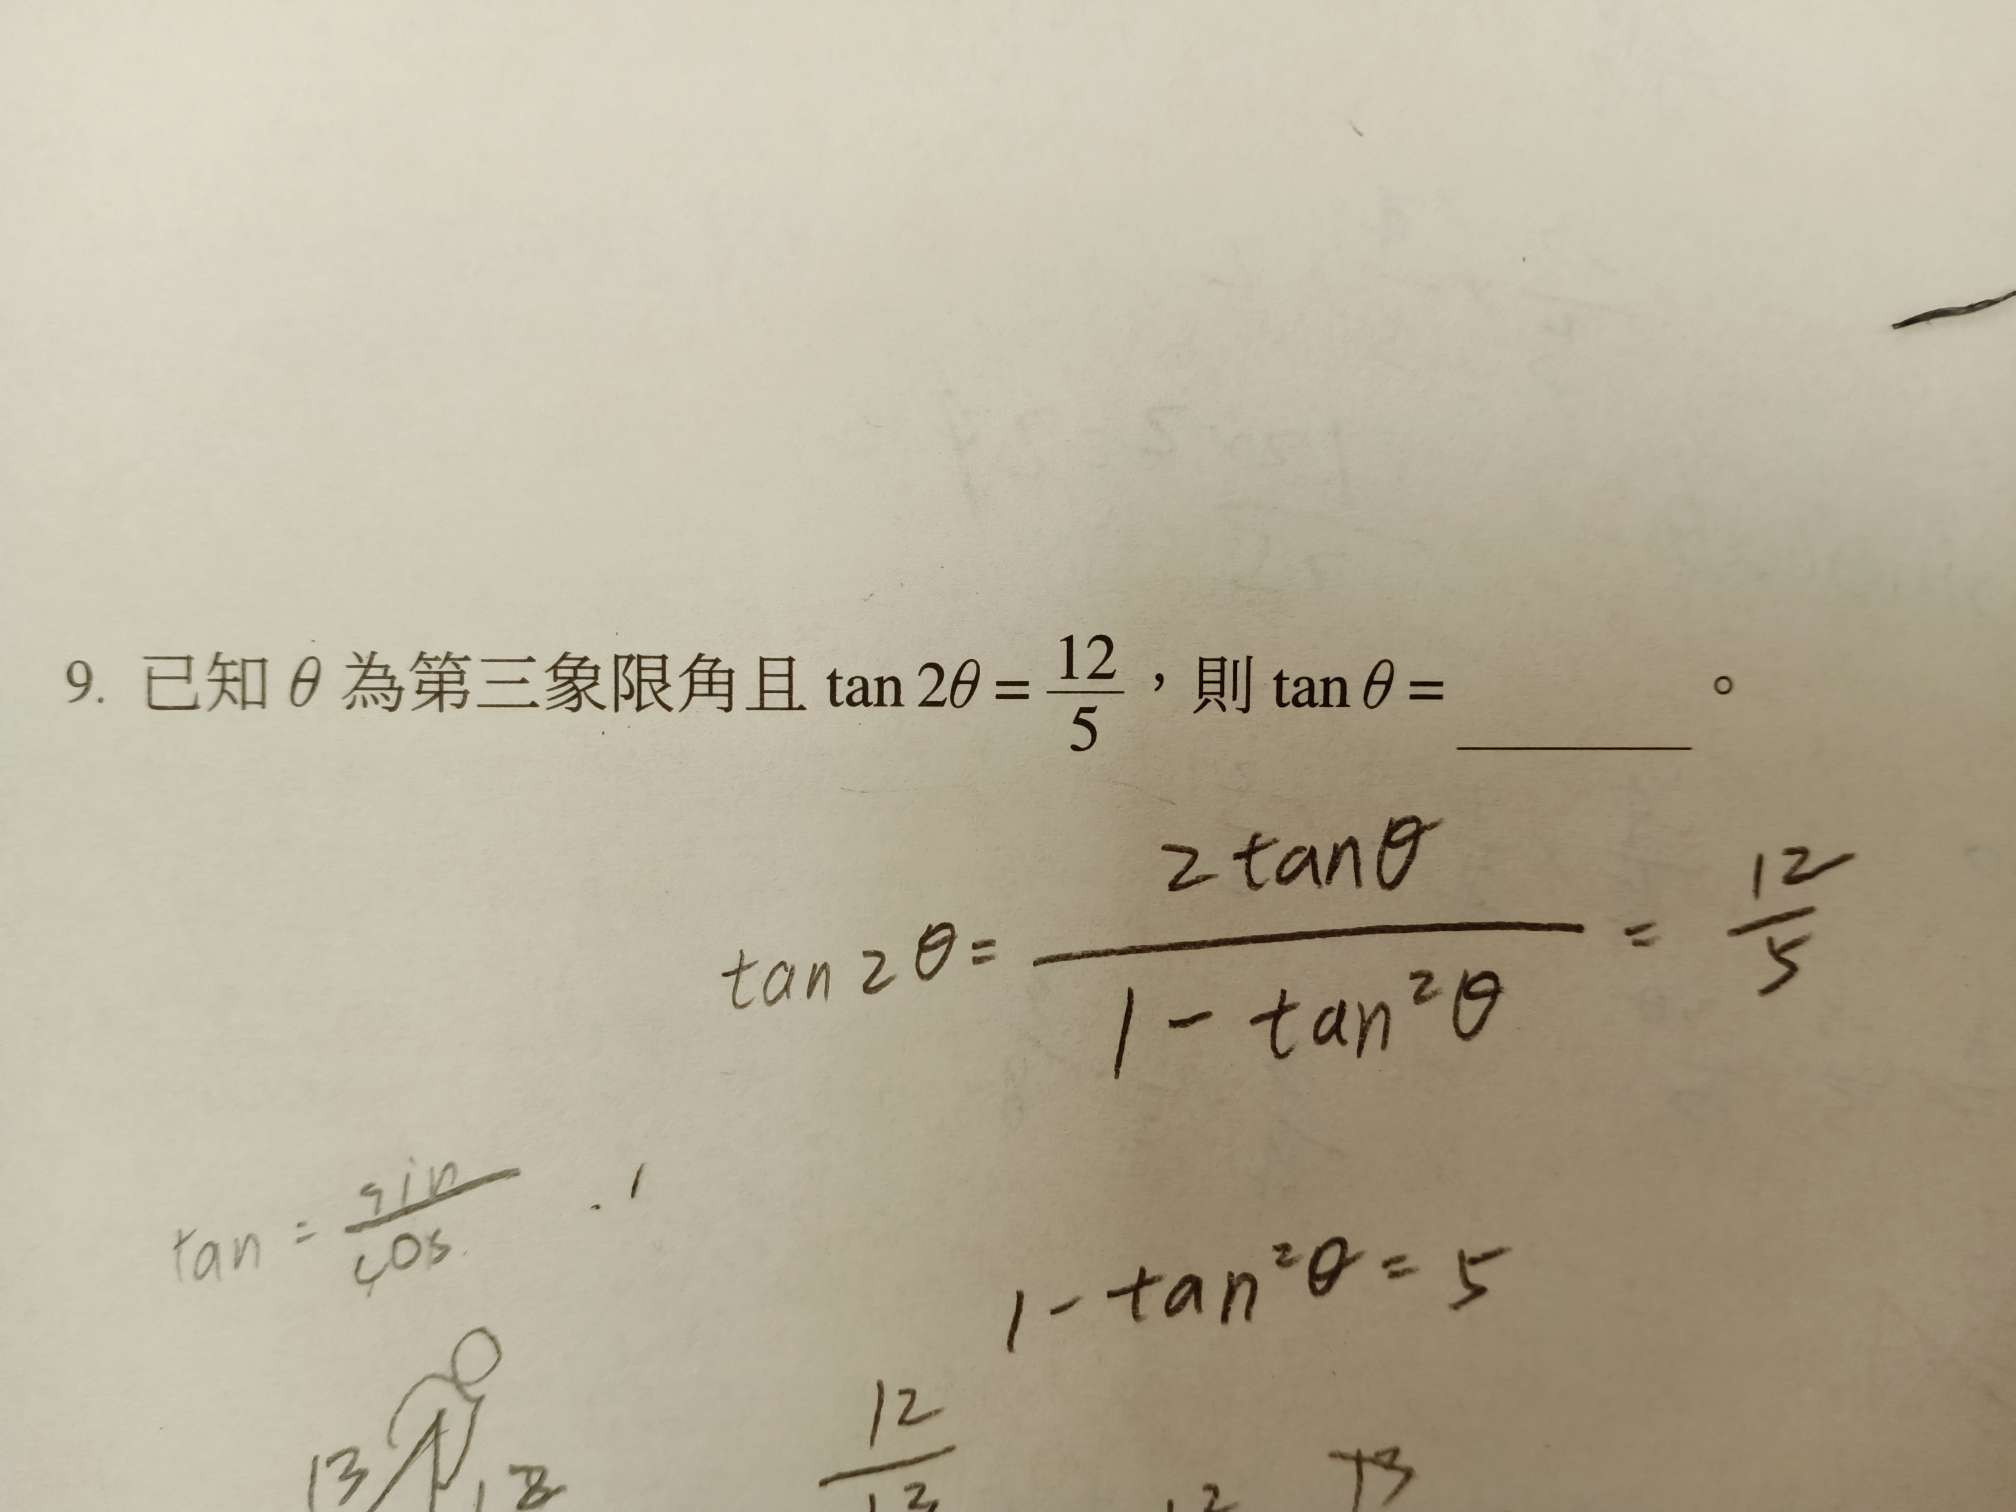 9. 已知 θ 為第三象限角且 tan 2θ = 12/5，則 tan θ = ______。
tan 2θ = 2 tan θ / 1 - tan²θ = 12/5
tan = sin/cos
1 - tan²θ = 5
13
12
12/13
12
13